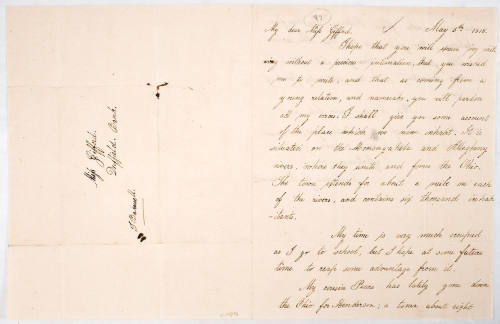 87
May 5th 1818.
My dear Miss Gifford.
I hope that you will excuse my writ
ing without a previous intimation, that you wished
me to write, and that as coming from a
young relation, and namesake, you will pardon
all my errors. I shall give you some account
of the place which we now inhabit. It is
situated on the Monongahela and Alleghany
rivers, where they unite and form the Ohio.
The town extends for about a mile on each
of the rivers, and contains six thousand inhab
-itants.
My time is very much occupied
as I go to school, but I hope at some future
time to reap some advantage from it.
My cousin Pearce has lately gone down
the Ohio for Henderson; a town about eight
Miss Gifford.
Duffield's Bank.